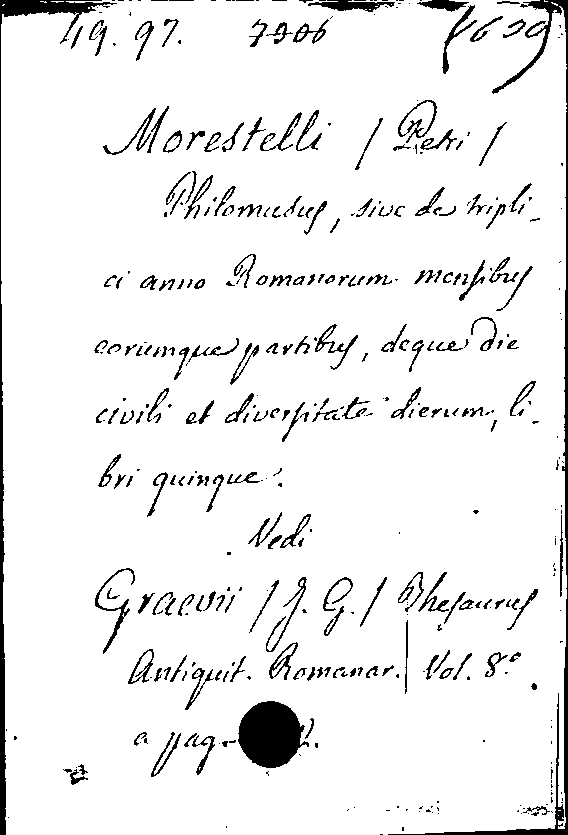 49. 97. 7906
Morestelli / Petri /
Philomusus, sive de tripli-
ci anno Romanorum mensibus
eorumque partibus, deque die
civili et diversitate dierum, li-
bri quinque.
Vedi
Graevii / J. G. / Thesaurus
Antiquit. Romanar. | Vol. 8.º
a pag.